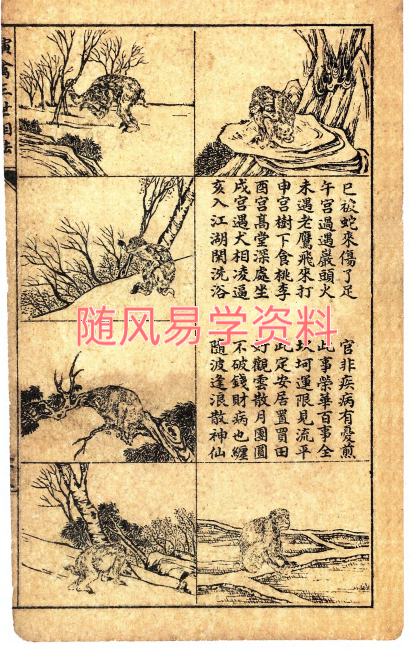 巳被蛇來傷了足 官非疾病有憂煎
午宮過遇巖頭火 此事榮華百事全
未遇老鷹飛來打 坎坷運限見流平
申宮樹下食桃李 此定安居置買田
酉宮高堂深處坐 好觀雲散月團圓
戌宮遇犬相凌逼 不破錢財病也纏
亥入江湖閑洗浴 隨波逢浪散神仙
演禽三世相法
随风易学资料